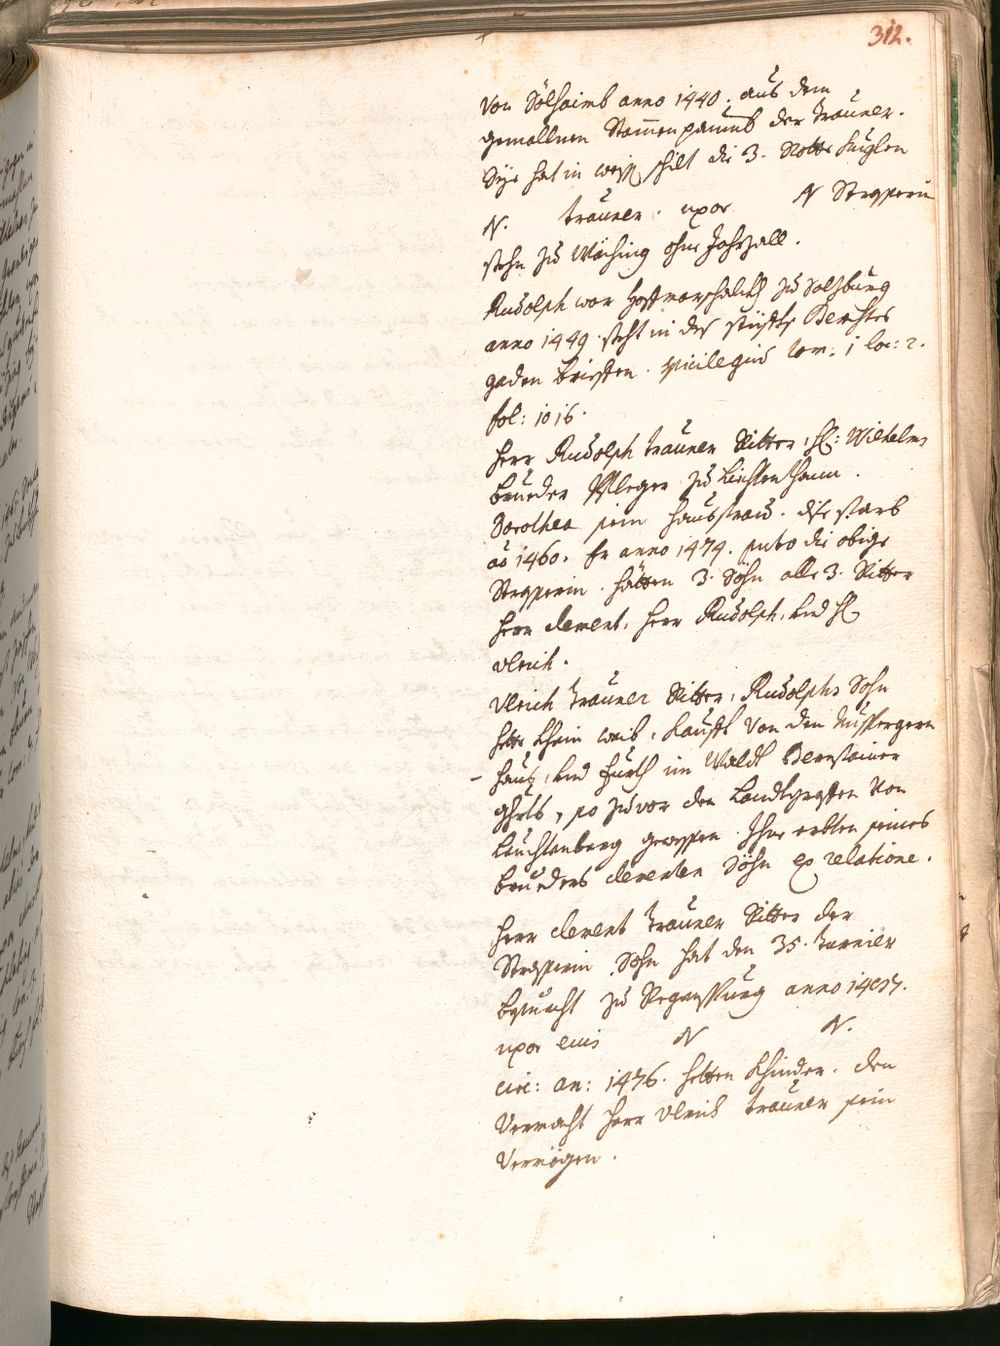 312.
Von Sölhaimb anno 1440. aus dem
gemallnen Stammenpaumb der trauner.
Sye hat in weiß schilt die 3. Rotte kuglen
N. trauner. uxor N Stegperin
stehn zu Wäching ohne Jahrzall.
Rudolph war Hoffmarschalckh zu Salzburg
anno 1449. steht in des stüffts Berchtes
gaden brieffen. tom: i loc: 2.
fol: 1016.
Herr Rudolph trauner Ritter, H: Wilhelms
brueder Pfleger zu Liechtenthann.
Dorothea sein Hausfrau. dise starb
ao 1460. Er anno 1474. puto die obige
Stegperin. hätten 3. Söhn alle 3. Ritter
Herr Clement, Herr Rudolph, und H
Ulrich.
Ulrich trauner Ritter, Rudolphs Sohn
hette khain weib, kaufft von den Nusspergern
Hauß, und Furth im Waldt Bernstainer
ghrts, so zuvor der Landtgraffen von
Leuchtenberg gewessen. Ihne erbten seines
brueders Clementen Söhn ex relatione.
Herr Clement trauner Ritter der
Stegperin Sohn hat den 35. turnier
besuecht zu Regenspurg anno 1487.
uxor eius N N.
circ: an: 1476. hetten khinder. den
Vermacht Herr Ulrich trauner sein
Vermögen.